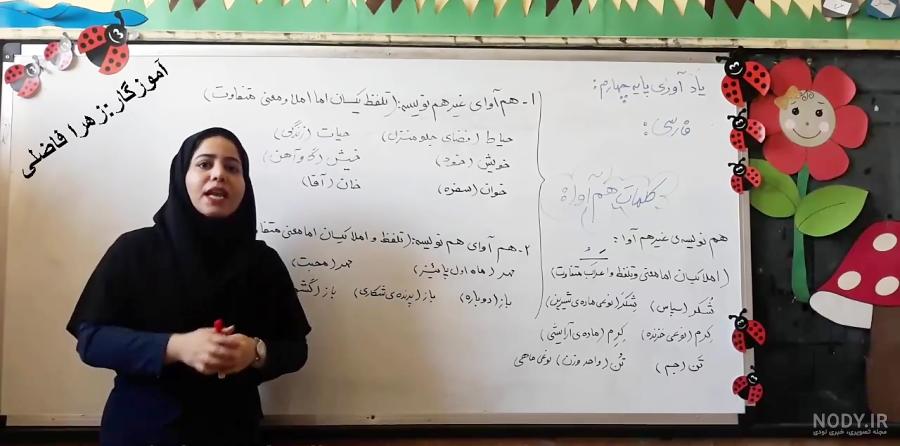 آموزگار: زهرا فاضلی
یادآوری پایه چهارم:
فارسی:
کلمات هم آوا
هم نویسه ی غیر هم آوا:
(املا یکسان اما معنی و تلفظ و اعراب متفاوت)
شُکر (سپاس) شِکَر (نوعی ماده ی شیرین)
کِرم (نوعی خزنده) کِرِم (ماده ی آرایشی)
تَن (جسم) تُن (واحد وزن) نوعی ماهی
۱- هم آوای غیر هم نویسه: (تلفظ یکسان اما املا و معنی متفاوت)
حیاط (فضای جلو منزل) حیات (زندگی)
خویش (خود) خیش (گاوآهن)
خوان (سفره) خان (آقا)
۲- هم آوای هم نویسه: (تلفظ و املا یکسان اما معنی متفاوت
مهر (ماه اول پاییز) مهر (محبت)
باز (دوباره) باز (پرنده ی شکاری) باز
NODY.IR
مجله تصویری، خبری نودی